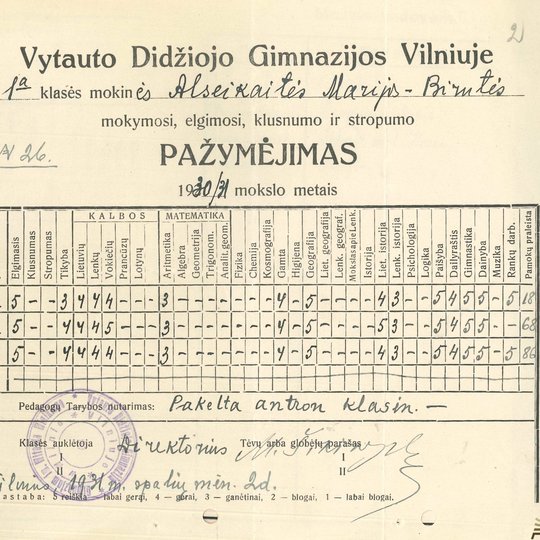 2
Vytauto Didžiojo Gimnazijos Vilniuje
1a klasės mokinės Alseikaitės Marijos-Birutės
mokymosi, elgimosi, klusnumo ir stropumo
N 26.
PAŽYMĖJIMAS
1930/31 mokslo metais
KALBOS MATEMATIKA
Elgimasis Klusnumas Stropumas Tikyba Lietuvių Lenkų Vokiečių Prancūzų Lotynų Aritmetika Algebra Geometrija Trigonom. Analit. geom. Fizika Chemija Kosmografija Gamta Higijena Geografija Liet. geografija Lenk. geograf. Mokslas apie Lenk. Istorija Liet. istorija Lenk. istorija Psichologija Logika Paišyba Dailyraštis Gimnastika Dainyba Muzika Rankų darb. Pamokų praleista
5 - - 3 4 4 4 - - 3 - - - - - - - 4 - 5 - - - - 4 3 - - 5 4 5 5 - 5 18
5 - - 4 4 4 5 - - 3 - - - - - - - 4 - 5 - - - - 5 3 - - 5 4 5 5 - - 68
5 - - 4 4 4 4 - - 3 - - - - - - - 4 - 5 - - - - 4 3 - - 5 4 5 5 - 5 86
Pedagogų Tarybos nutarimas: Pakelta antron klasėn. —
Klasės auklėtoja Direktorius Tėvų arba globėjų parašas
I I
II II
Vilnius 1931 m. spalių mėn. 2d.
astaba: 5 reiškia — labai gerai, 4 — gerai, 3 — ganėtinai, 2 — blogai, 1 — labai blogai.